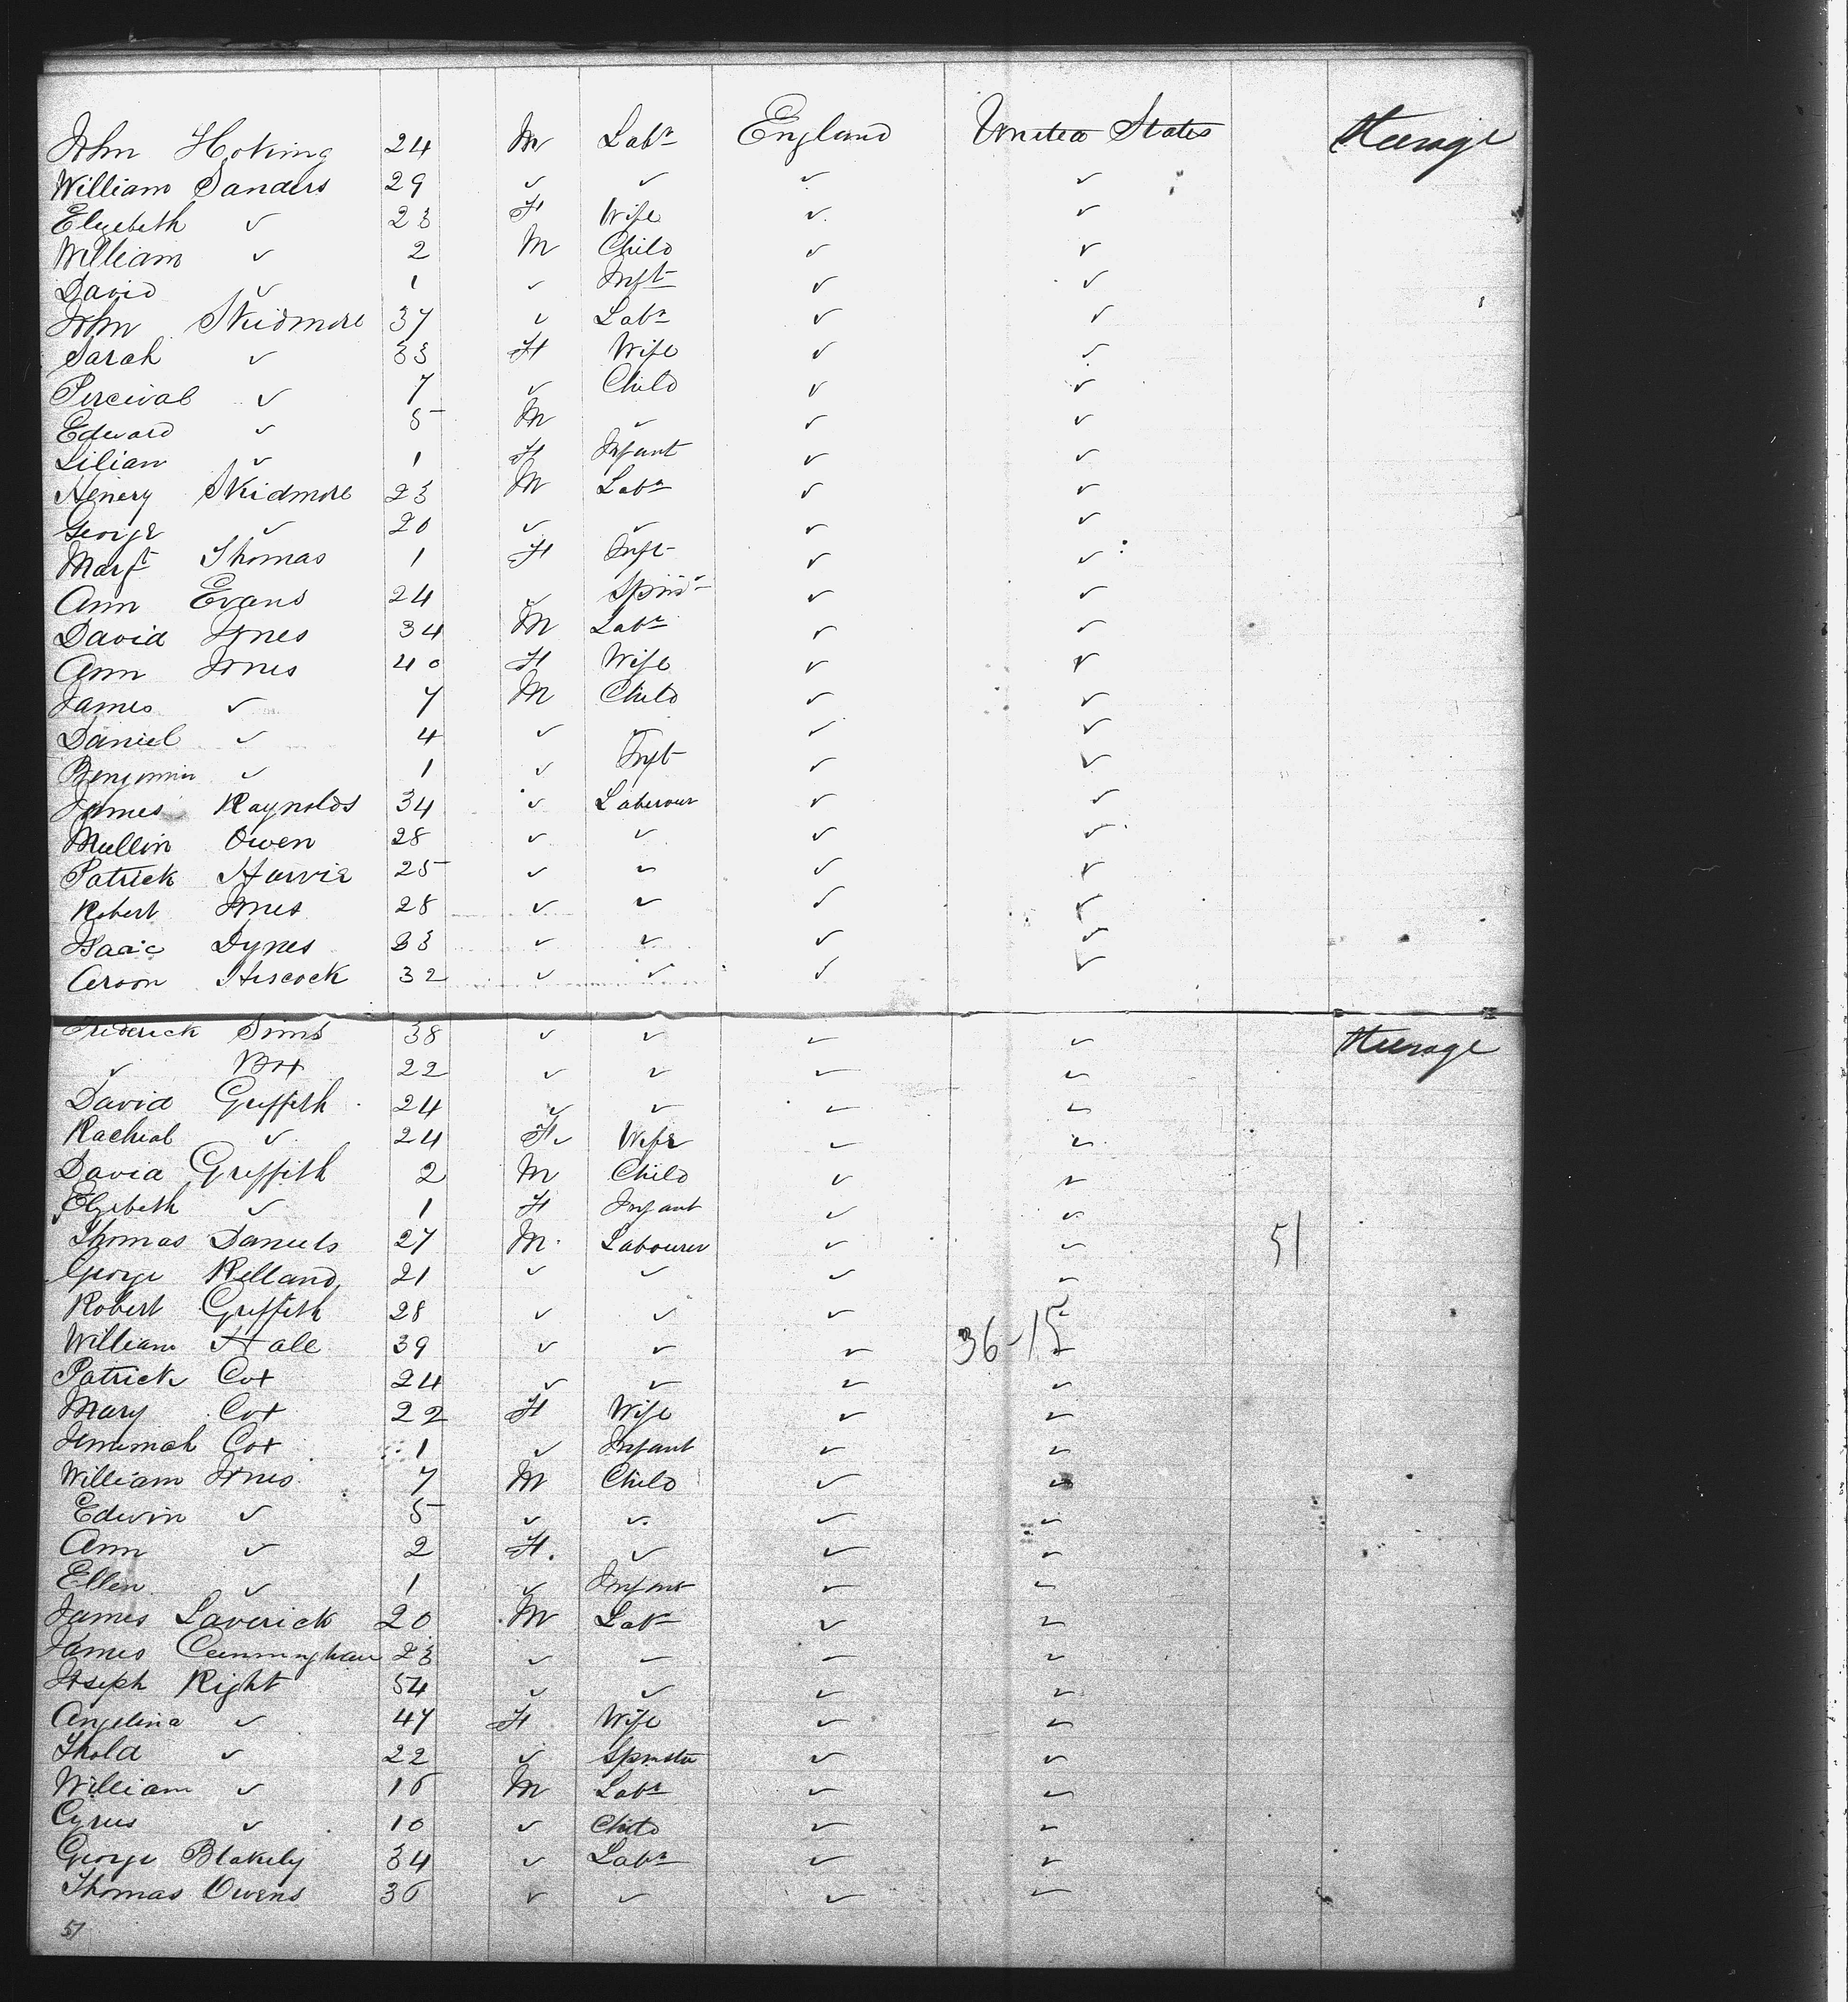 John Hoking 24 M Labr England United States Steerage
William Sanders 29 ✓ ✓ ✓ ✓
Elizebeth ✓ 23 F Wife ✓ ✓
William ✓ 2 M Child ✓ ✓
David ✓ 1 ✓ Inft ✓ ✓
John Skidmore 37 ✓ Labr ✓ ✓
Sarah ✓ 33 F Wife ✓ ✓
Percival ✓ 7 ✓ Child ✓ ✓
Edward ✓ 5 M ✓ ✓ ✓
Lilian ✓ 1 F Infant ✓ ✓
Henery Skidmore 23 M Labr ✓ ✓
George ✓ 20 ✓ ✓ ✓ ✓
Margt Thomas 1 F Inft ✓ ✓
Ann Evans 24 ✓ Spinr ✓ ✓
David Jones 34 M Labr ✓ ✓
Ann Jones 40 F Wife ✓ ✓
James ✓ 7 M Child ✓ ✓
Daniel ✓ 4 ✓ ✓ ✓ ✓
Benjamin ✓ 1 ✓ Inft ✓ ✓
James Raynolds 34 ✓ Laberour ✓ ✓
Mullin Owen 28 ✓ ✓ ✓ ✓
Patrick Harvie 25 ✓ ✓ ✓ ✓
Robert Jones 28 ✓ ✓ ✓ ✓
Isaac Dynes 33 ✓ ✓ ✓ ✓
Aroon Hiscock 32 ✓ ✓ ✓ ✓
Frederick Sims 38 ✓ ✓ ✓ ✓ Steerage
✓ Box 22 ✓ ✓ ✓ ✓
David Griffith 24 ✓ ✓ ✓ ✓
Rachial ✓ 24 F ✓ Wife ✓ ✓
David Griffith 2 M Child ✓ ✓
Elizebeth ✓ 1 F Infant ✓ ✓
Thomas Daniels 27 M Labourer ✓ ✓ 51
George Kelland 21 ✓ ✓ ✓ ✓
Robert Griffith 28 ✓ ✓ ✓ ✓
William Hale 39 ✓ ✓ ✓ 36-15 ✓
Patrick Cox 24 ✓ ✓ ✓ ✓
Mary Cox 22 F Wife ✓ ✓
Jemimah Cox 1 ✓ Infant ✓ ✓
William Jones 7 M Child ✓ ✓
Edwin ✓ 5 ✓ ✓ ✓ ✓
Ann ✓ 2 F ✓ ✓ ✓
Ellen ✓ 1 ✓ Infant ✓ ✓
James Laverick 20 M Labr ✓ ✓
James Cunningham 23 ✓ ✓ ✓ ✓
Joseph Right 54 ✓ ✓ ✓ ✓
Angelina ✓ 47 F Wife ✓ ✓
✓ 22 ✓ Spinster ✓ ✓
William ✓ 16 M Labr ✓ ✓
Cyrus ✓ 10 ✓ Child ✓ ✓
George Blakely 34 ✓ Labr ✓ ✓
Thomas Owens 36 ✓ ✓ ✓ ✓
51